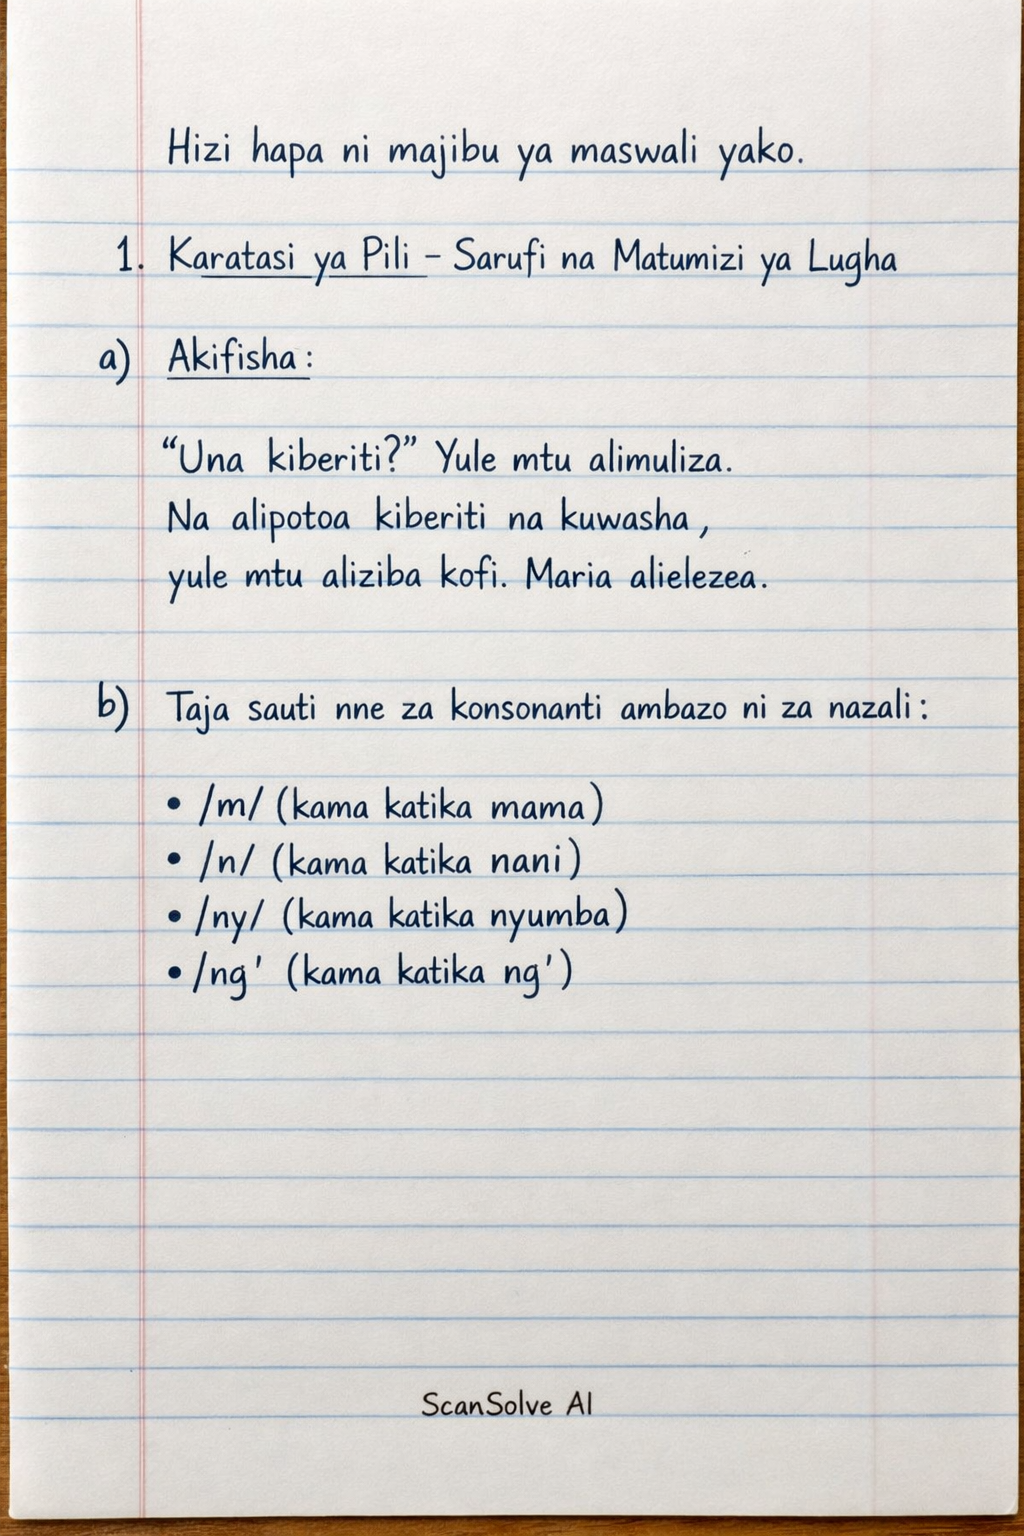 Hizi hapa ni majibu ya maswali yako.
1. Karatasi ya Pili – Sarufi na Matumizi ya Lugha
a) Akifisha:
“Una kiberiti?” Yule mtu alimuliza.
Na alipotoa kiberiti na kuwasha,
yule mtu aliziba kofi. Maria alielezea.
b) Taja sauti nne za konsonanti ambazo ni za nazali:
• /m/ (kama katika mama)
• /n/ (kama katika nani)
• /ny/ (kama katika nyumba)
• /ng' (kama katika ng')
ScanSolve AI